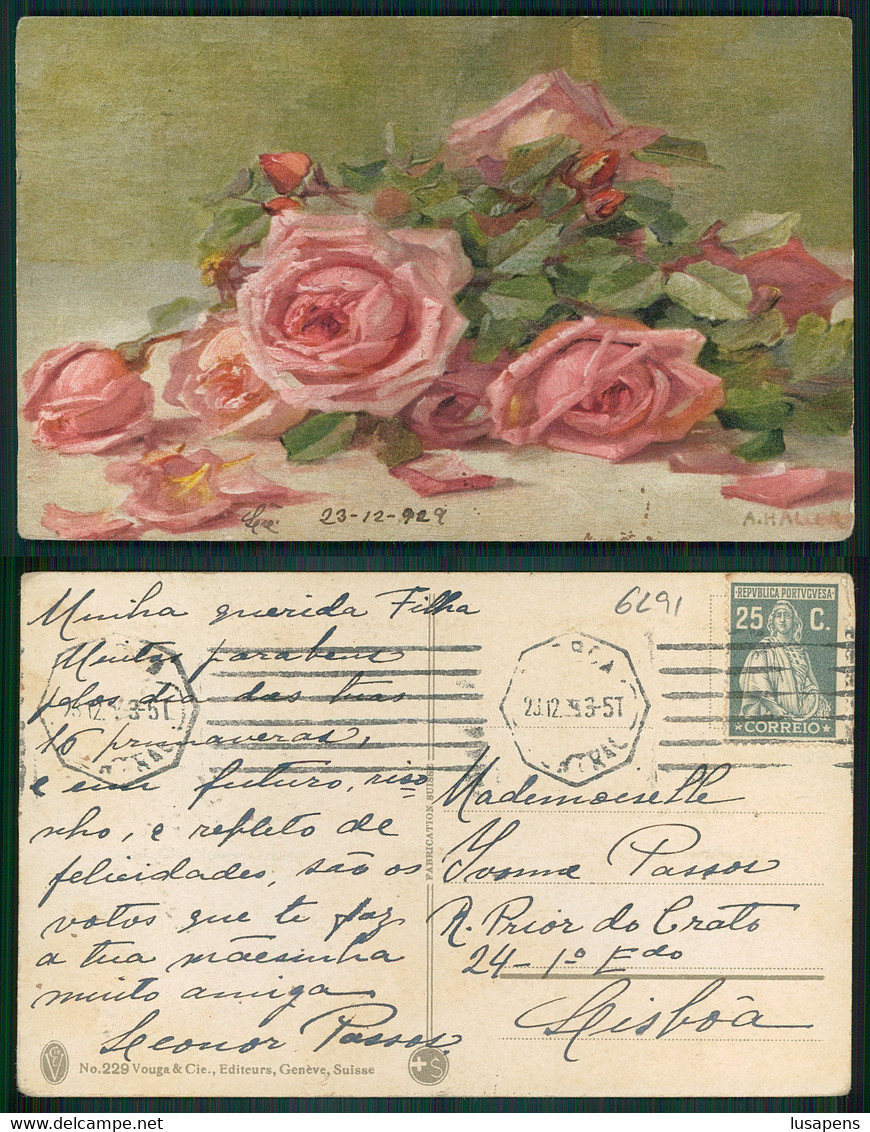 23-12-929
A. HALLER
Minha querida Filha
6291
REPVBLICA PORTVGVESA
25 C.
CORREIO
Muitos parabens
pelos dia das tuas
16 primaveras,
e um futuro, riso
nho, e repleto de
felicidades, são os
votos que te faz
a tua mãesinha
muito amiga
Leonor Passos
23.12. 3-5T
23.12. 3-5T
FABRICATION SUISSE
Mademoiselle
Yvonne Passos
R. Prior do Crato
24-1º Edo
Lisbôa
No. 229 Vouga & Cie., Editeurs, Genève, Suisse
lusapens